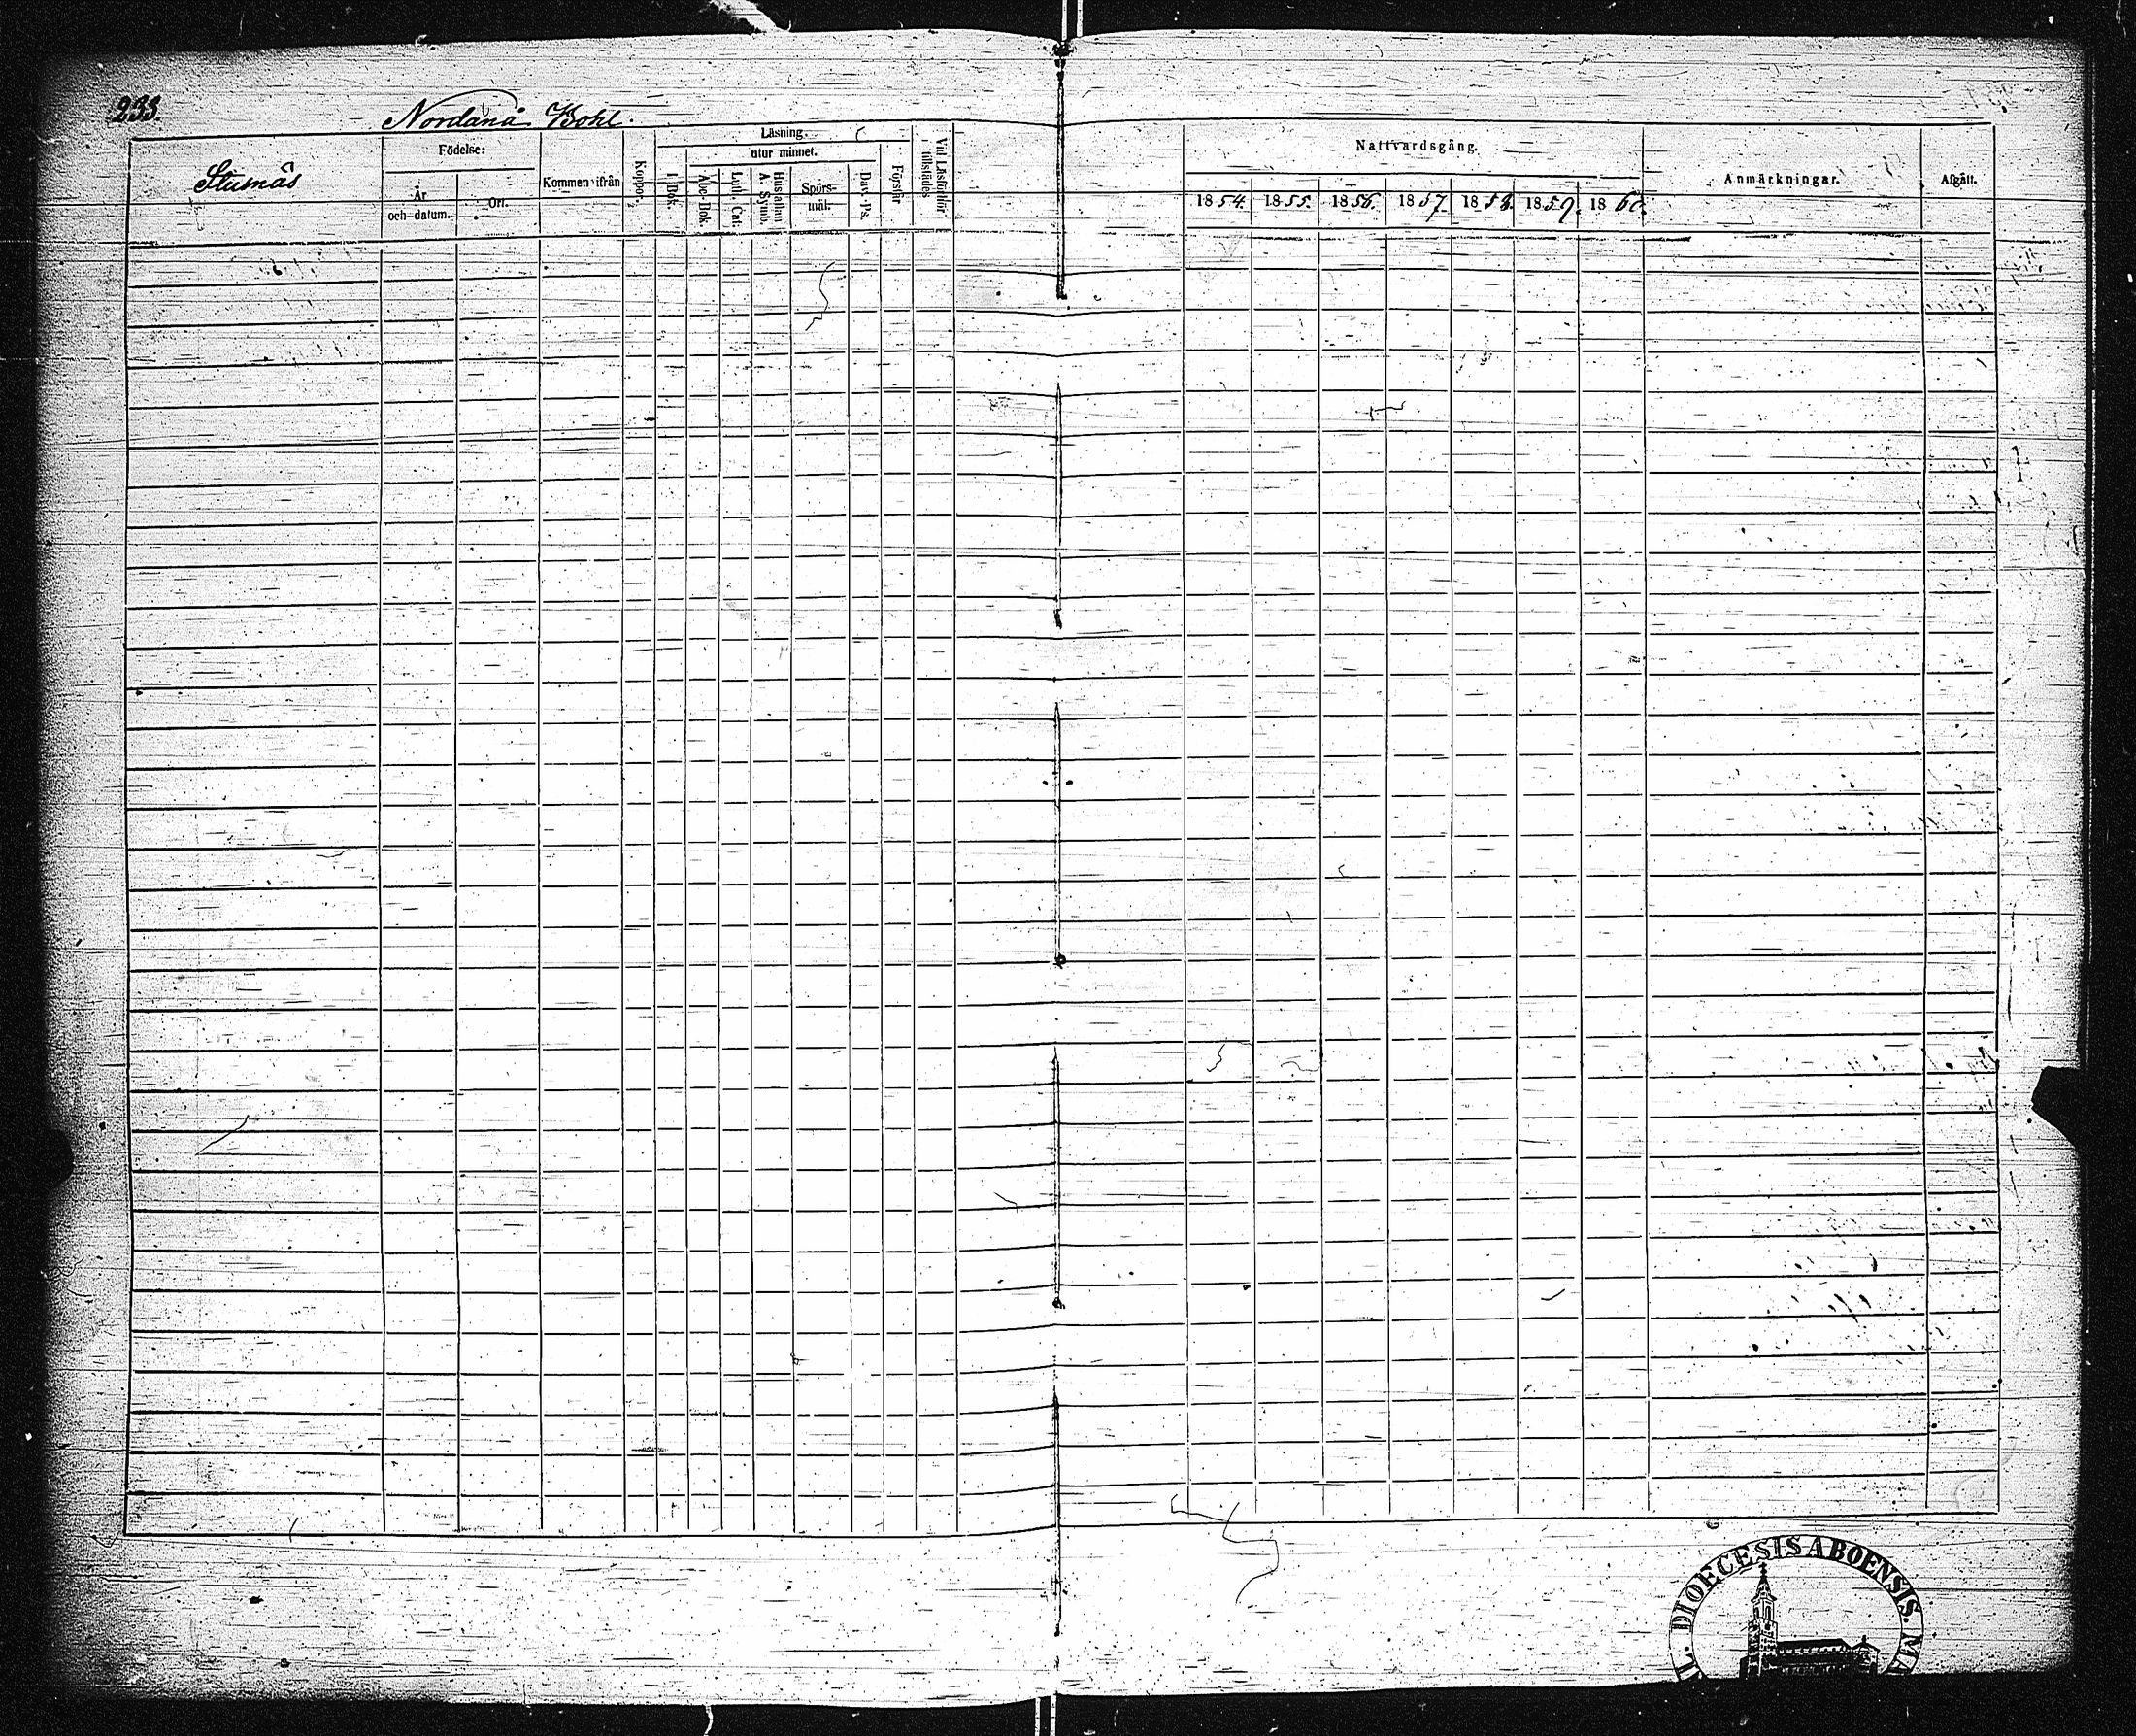 233.
Nordanå Bohl.
Stusnäs
Födelse:
År
och datum.
Ort.
Kommen ifrån
Koppor.
Läsning
utur minnet.
I Bok.
Abc-Bok
Luth. Cat.
Hustaflan
A. Symb.
Spörs-
mål.
Dav. Ps.
Förstår
Vid Läsförhör
tillstädes
Nattvardsgång.
1854. 1855. 1856. 1857. 1858. 1859. 1860.
Anmärkningar.
Afgått.
DIOECESIS ABOENSIS. MA